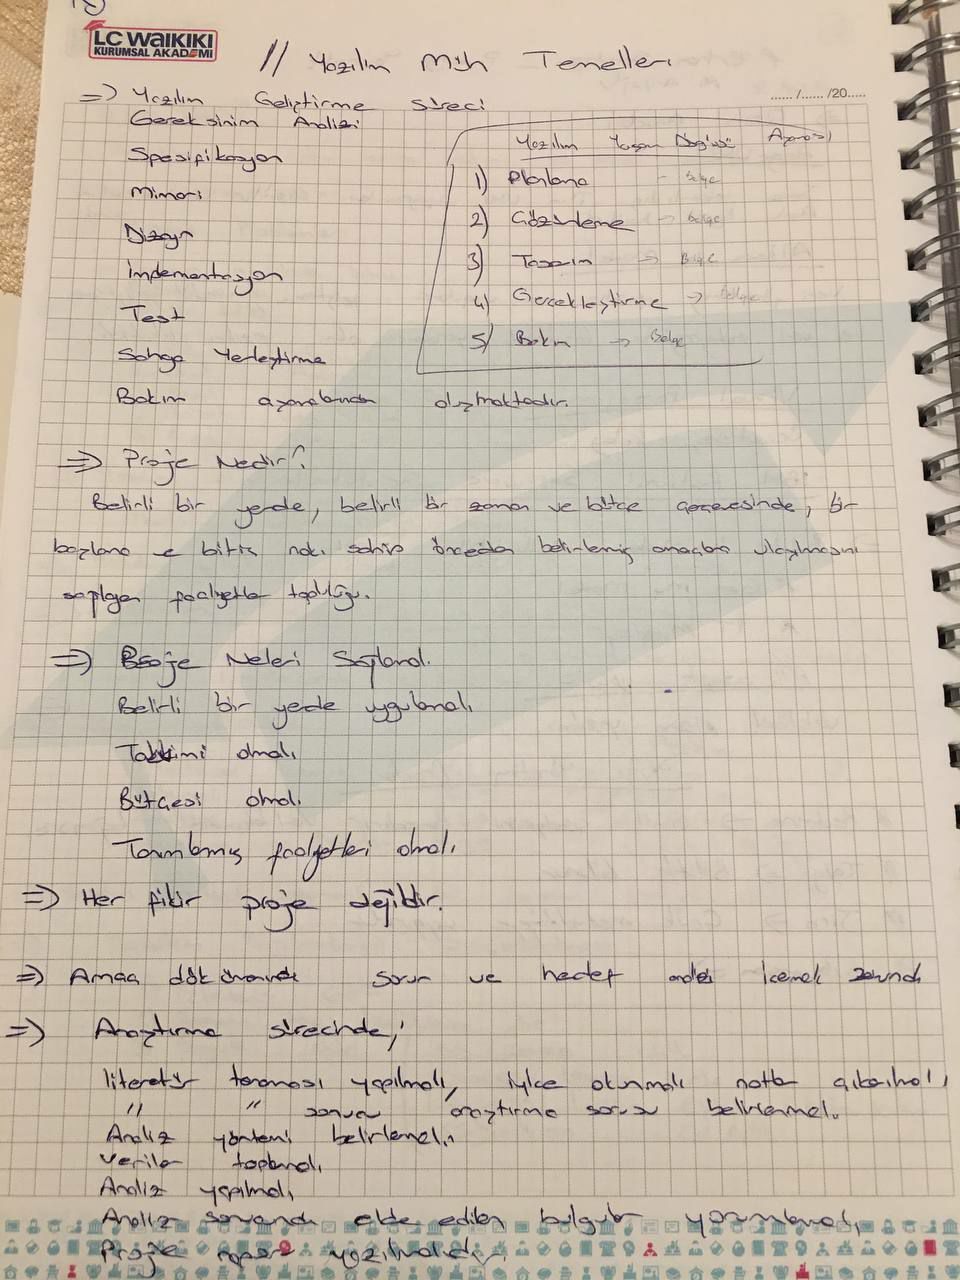 LC WAIKIKI
KURUMSAL AKADEMİ
// Yazılım Müh Temelleri
...... /...... /20.....
=> Yazılım Geliştirme süreci
Gereksinim Analizi
Spesifikasyon
Mimari
Dizayn
İmplementasyon
Test
Sahaya Yerleştirme
Bakım aşamalarından oluşmaktadır.
Yazılım Yaşam Döngüsü Aşaması
1) Planlama -> Belge
2) Çözümleme -> Belge
3) Tasarım -> Belge
4) Gerçekleştirme -> Belge
5) Bakım -> Belge
=> Proje Nedir?
Belirli bir yerde, belirli bir zaman ve bütçe çerçevesinde, bir
başlama ve bitiş nok. sahip önceden belirlenmiş amaçların ulaşılmasını
sağlayan faaliyetler topluluğu.
=> Proje Neleri Sağlamalı.
Belirli bir yerde uygulanmalı
Takvimi olmalı
Bütçesi olmalı
Tanımlanmış faaliyetleri olmalı.
=> Her fikir proje değildir.
=> Amaç dökümanında sorun ve hedef içermek zorunda
=> Araştırma sürecinde;
literatür taraması yapılmalı, iyice okunmalı notlar çıkarılmalı,
" " sonucu araştırma sorusu belirlenmeli.
Analiz yöntemi belirlemeli.
veriler toplanmalı
Analiz yapılmalı
Analiz sonucunda elde edilen bulgular yorumlanmalı,
Proje raporu yazılmalıdır.